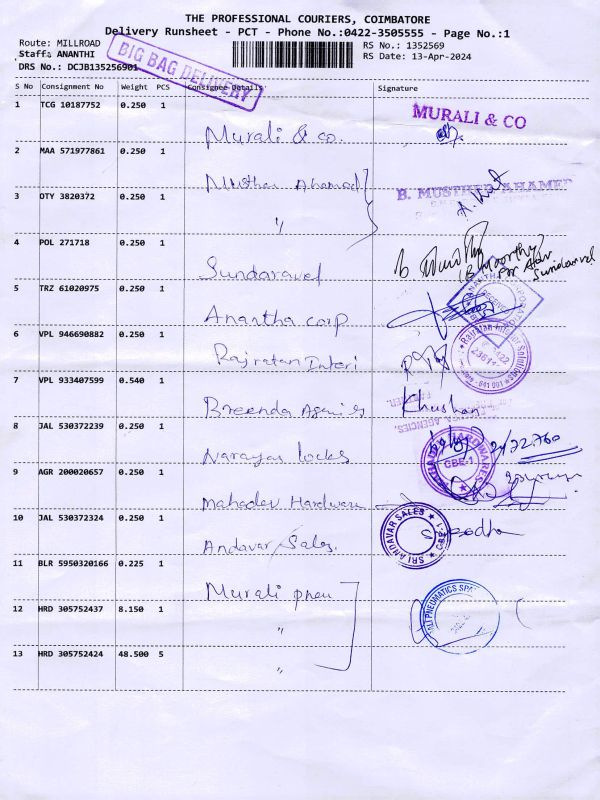 THE PROFESSIONAL COURIERS, COIMBATORE
Delivery Runsheet - PCT - Phone No.:0422-3505555 - Page No.:1
Route: MILLROAD
RS No.: 1352569
Staff: ANANTHI
RS Date: 13-Apr-2024
DRS No.: DCJB135256901
BIG BAG DELIVERY
S No Consignment No Weight PCS Consignee Details Signature
1 TCG 10187752 0.250 1
MURALI & CO
Murali & co.
2 MAA 571977861 0.250 1
Musthar Ahamad
B. MUSTHER AHAMED
3 OTY 3820372 0.250 1
"
4 POL 271718 0.250 1
(B Moorthy)
for
Sundaravel
Sundaravel
5 TRZ 61020975 0.250 1
Anantha corp
6 VPL 946690882 0.250 1
Rajratan Interi
7 VPL 933407599 0.540 1
Breenda Agenies Khushan
AGENCIES.
8 JAL 530372239 0.250 1
Narayan locks
HARDWARES
CBE-1
9 AGR 200020657 0.250 1
Mahadev Hardware
10 JAL 530372324 0.250 1
SRI ANDAVAR SALES
Andavar Sales.
11 BLR 5950320166 0.225 1
Murali pneu
PNEUMATICS
12 HRD 305752437 8.150 1
"
13 HRD 305752424 48.500 5
"